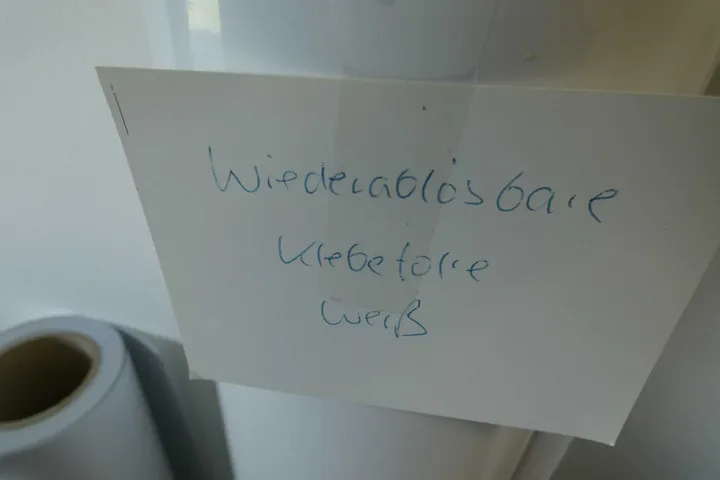 Wiederablösbare
Klebefolie
weiß